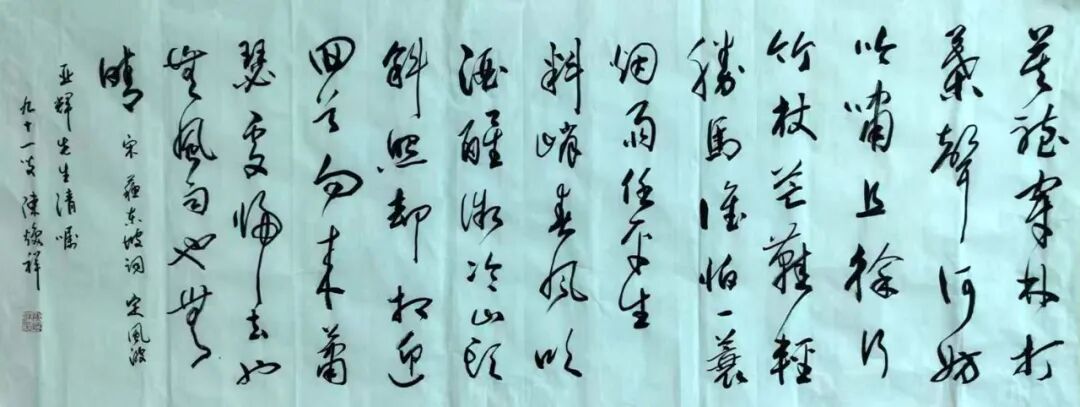 莫聽穿林打
葉聲何妨
吟嘯且徐行
竹杖芒鞋輕
勝馬誰怕一蓑
烟雨任平生
料峭春風吹
酒醒微冷山頭
斜照却相迎
回首向来蕭
瑟處歸去也
無風雨也無
晴 宋 蘇东坡詞 定風波
亚輝先生清嘱
九十一叟 陳焕祥